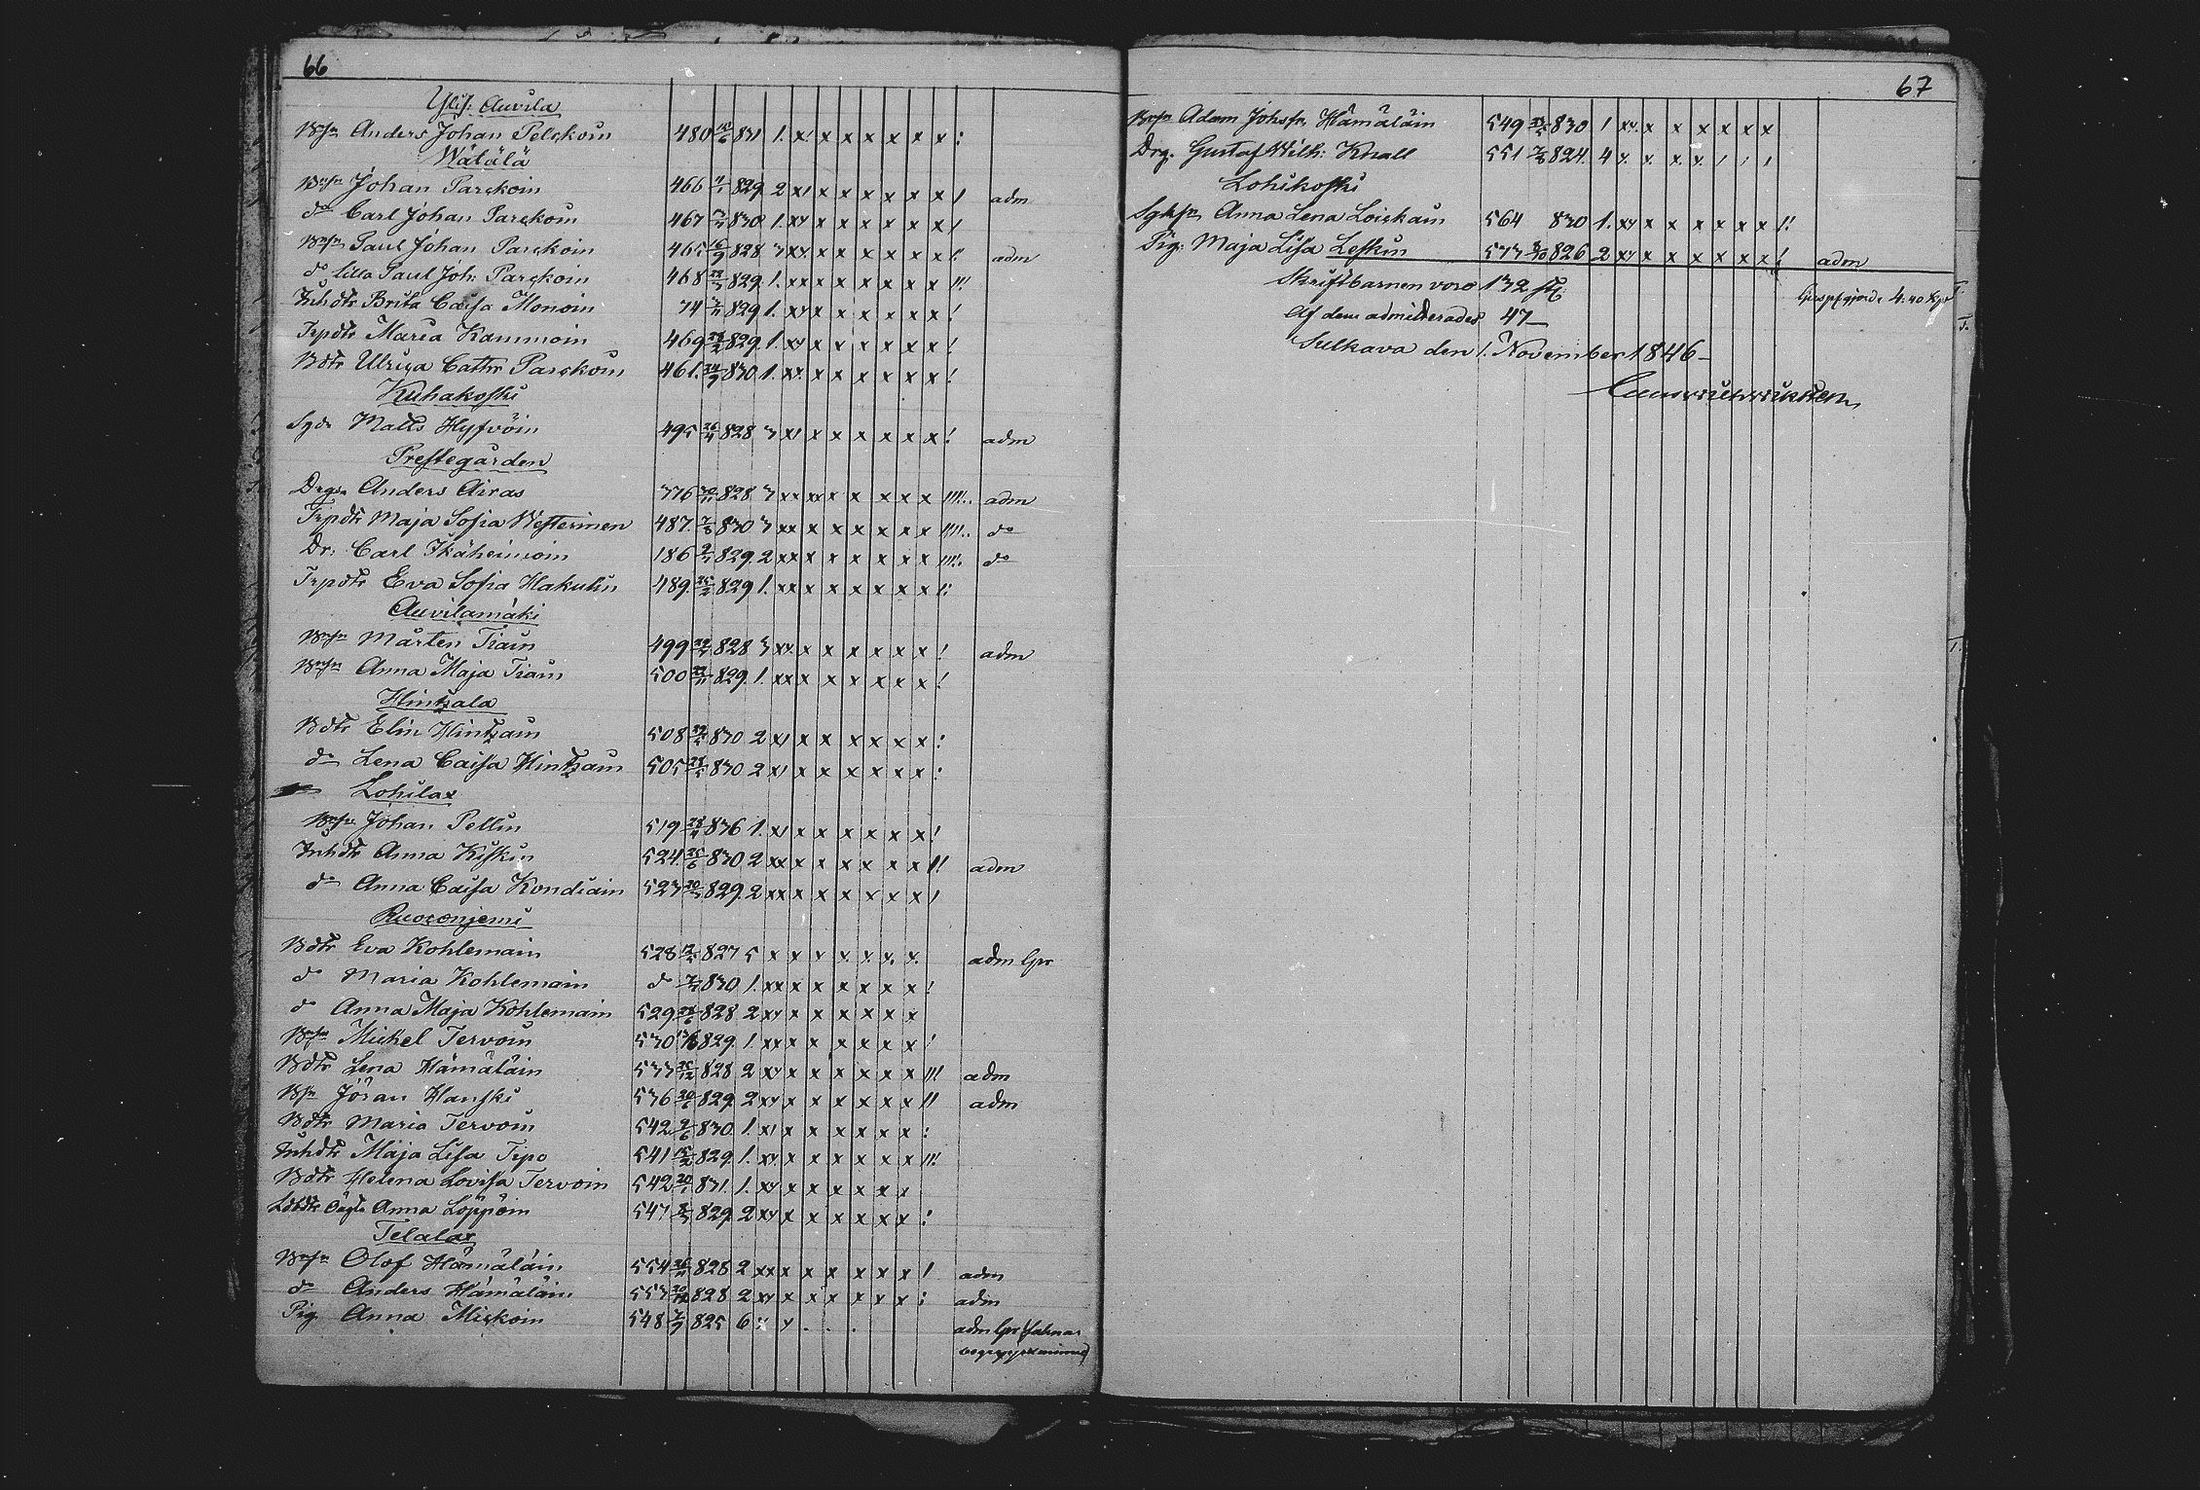 66
Ylis: Auvila
Bsn Anders Johan Pelckoin 480 831 1. x x x x x x x :
Wätälä
Bsn Johan Parckoin 466 829. 2 x x x x x x x ! adm
do Carl Johan Parckoin 467 830 1. xx x x x x x x !
Bsn Paul Johan Parckoin 465 16/9 828 3 xx x x x x x x ! adm
do lilla Paul Joh: Parckoin 468 829. 1. xx x x x x x x !!!
Inhdtr Brita Caisa Monoin 74 829 1. xx x x x x x x !
Trpdtr Maria Kammoin 469 829. 1. xx x x x x x x !
Bdtr Ulrica Cathr Parckoin 461. 830. 1. xx x x x x x x !
Kuhakoski
Matts Hyfvöin 495 26/4 828 3 x x x x x x x ! adm
Prestegården
Anders Airas 376 828 3 xx xx x x x x x !!!.. adm
Trpdtr Maja Sofia Westerinen 487. 830 3 xx x x x x x x !!!.. do
Dr: Carl Ikäheimoin 186 829. 2 xx x x x x x x !!!.. do
Trpdtr Eva Sofia Hakulin 489. 829 1. xx x x x x x x !:
Auvilamäki
Bsn Mårten Tiain 499 828 3 xx x x x x x x ! adm
Anna Maja Tiain 500 829. 1. xx x x x x x x !
Hintzala
Bdtr Elin Hintzain 508 830 2 x x x x x x x :
do Lena Caisa Hintzain 505 830 2 x x x x x x x :
Lohilax
Bsn Johan Pellin 519 836 1. x x x x x x x !
Inhdtr Anna Kiskin 524. 25/6 830 2 xx x x x x x x !! adm
do Anna Caisa Kondiain 523 829. 2 xx x x x x x x !
Ruoconjemi
Bdtr Eva Kohlemain 528 827 5 x x x x x x x adm
do Maria Kohlemain do 830 1. xx x x x x x x !
do Anna Maja Kohlemain 529 828 2 xx x x x x x x
Bsn Mickel Tervoin 530 829. 1. xx x x x x x x !
Bdtr Lena Hämäläin 533 828 2 xx x x x x x x !!! adm
Bsn Jöran Hanski 536 20/6 829. 2 xx x x x x x x !! adm
Bdtr Maria Tervoin 542 830. 1. x x x x x x x :
Inhdtr Maja Lisa Tipo 541 829. 1. xx x x x x x x !!!
Bdtr Helena Lovisa Tervoin 542 831. 1. xx x x x x x x
Anna Löppöin 547 829. 2 xx x x x x x x :
Telalax
Bsn Olof Hämäläin 554 828 2 xx x x x x x x ! adm
do Anders Hämäläin 553 828 2 xx x x x x x x : adm
Pig Anna Mickoin 548 7/9 825 6 x x . . . adm
67
Bsn Adam Johsn Hämäläin 549 830 1 xx x x x x x x
Drg. Gustaf Wilh: Knall 551 824. 4 x x x x ! ! !
Lohikoski
Anna Lena Loickain 564 830 1. xx x x x x x x !!
Pig: Maja Lisa Leskin 573 826 2 xx x x x x x x ! adm
Skriftbarnen voro 132 st:
Af dem admitterades 47—
Sulkava den 1. November 1846—